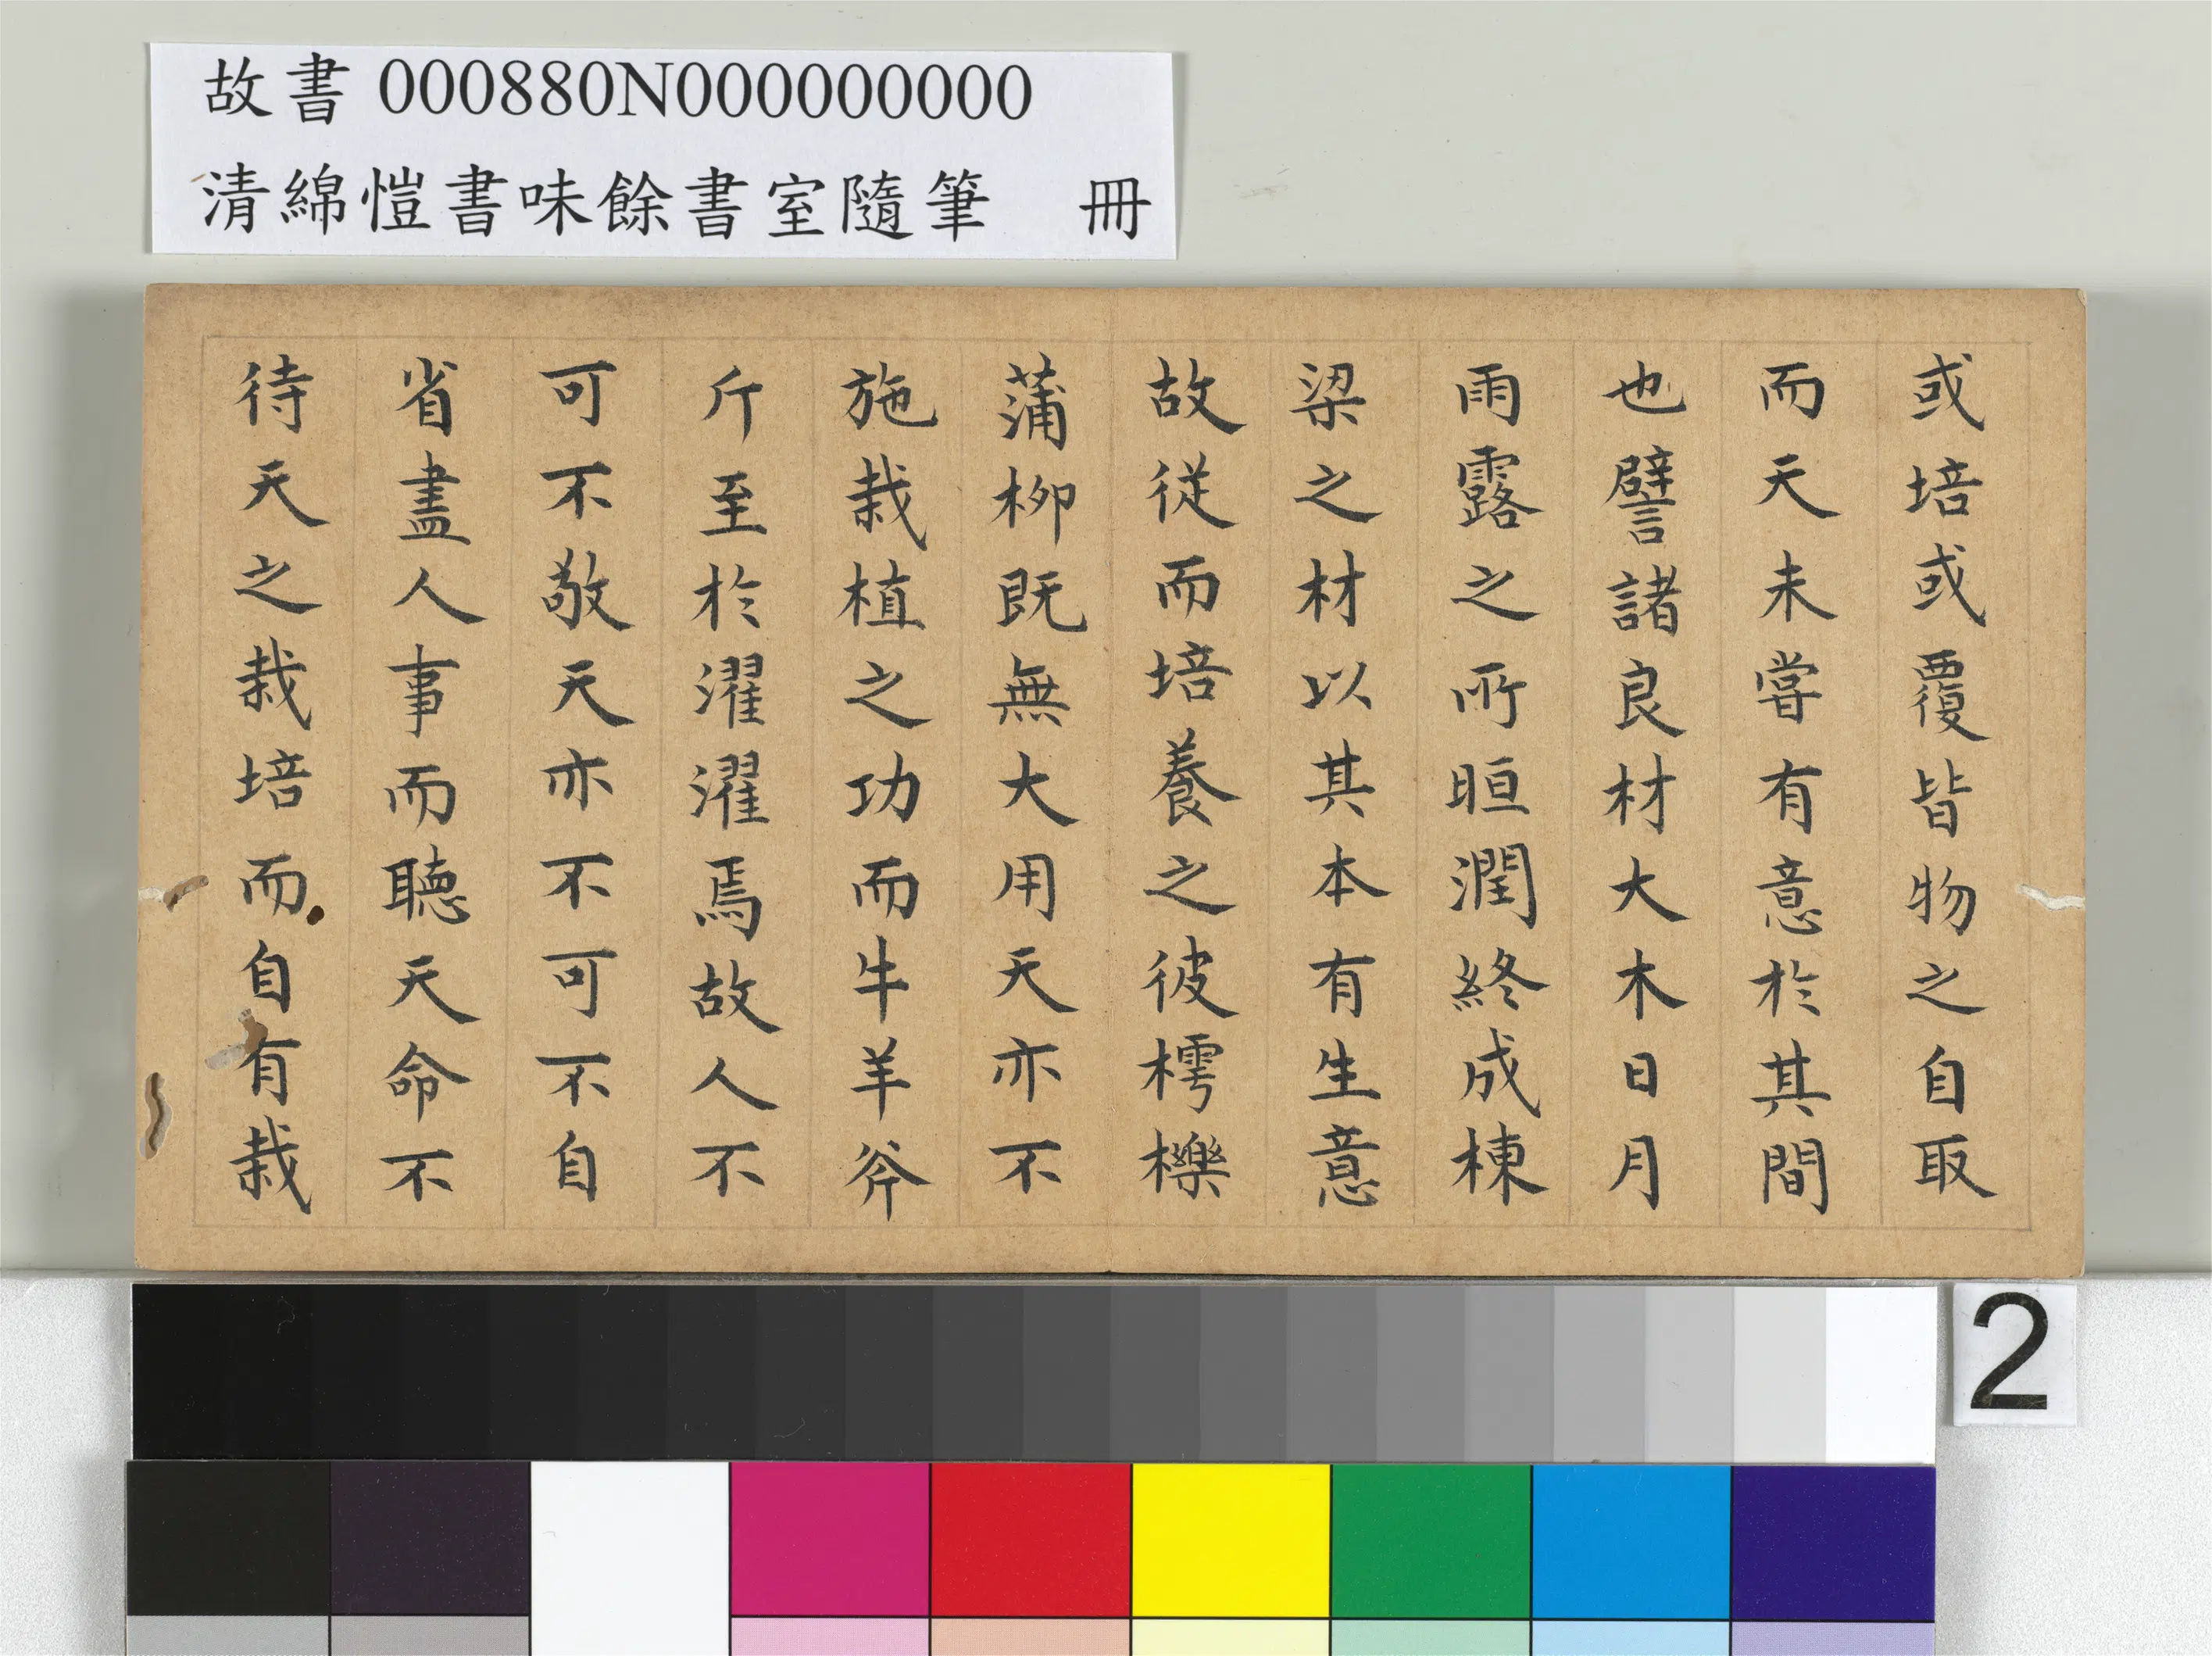 故書 000880N000000000
清綿愷書味餘書室隨筆　冊
或培或覆皆物之自取
而天未嘗有意於其間
也譬諸良材大木日月
雨露之所晅潤終成棟
梁之材以其本有生意
故從而培養之彼樗櫟
蒲柳既無大用天亦不
施栽植之功而牛羊斧
斤至於濯濯焉故人不
可不敬天亦不可不自
省盡人事而聽天命不
待天之栽培而自有栽
2